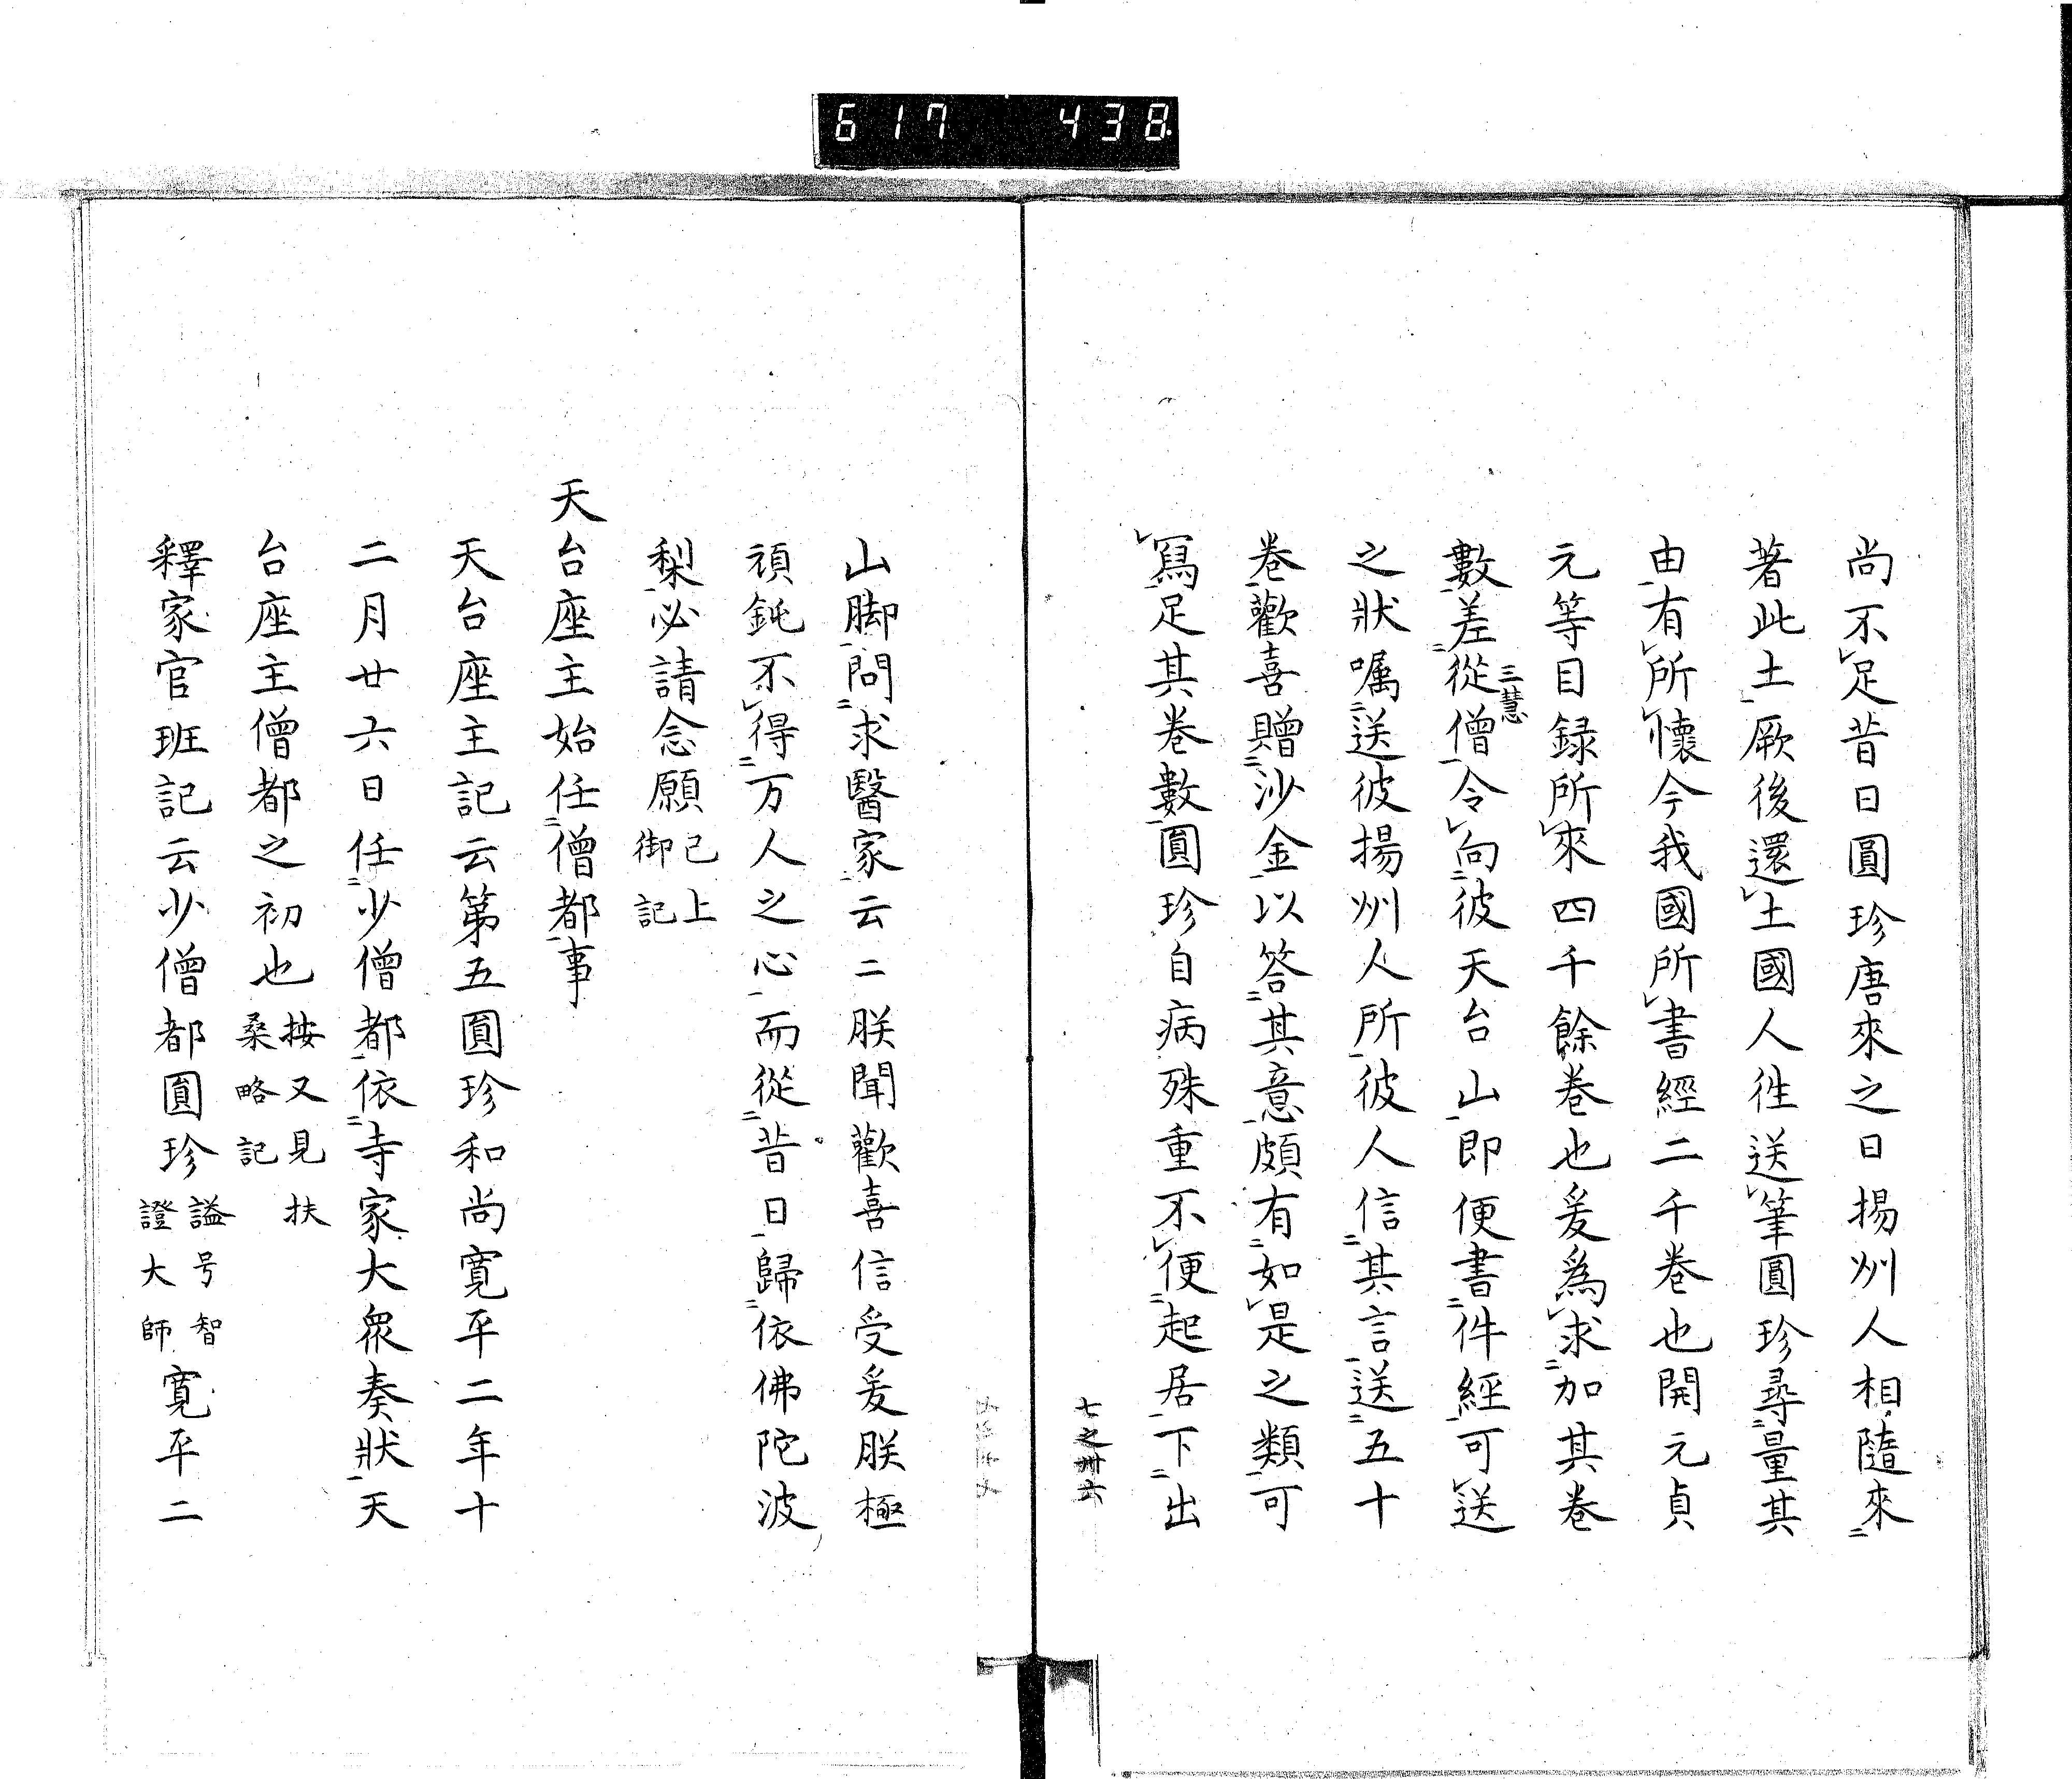 617 438
尚不足昔日圓珍唐來之日揚州人相隨來
著此土厥後還土國人徃送筆圓珍尋量其
由有所懷今我國所書經二千卷也開元貞
元等目録所來四千餘卷也爰爲求加其卷
數差從僧令向彼天台山即便書件經可送
三慧
之狀嘱送彼揚州人所彼人信其言送五十
卷歡喜贈沙金以答其意頗有如是之類可
寫足其卷數圓珍自病殊重不便起居下出
七之卅六
山脚問求醫家云二朕聞歡喜信受爰朕極
頑鈍不得万人之心而從昔日歸依佛陀波
梨必請念願
已上
御記
天台座主始任僧都事
天台座主記云第五圓珍和尚寛平二年十
二月廿六日任少僧都依寺家大衆奏狀天
台座主僧都之初也
按又見扶
桑略記
釋家官班記云少僧都圓珍
謚号智
證大師
寛平二